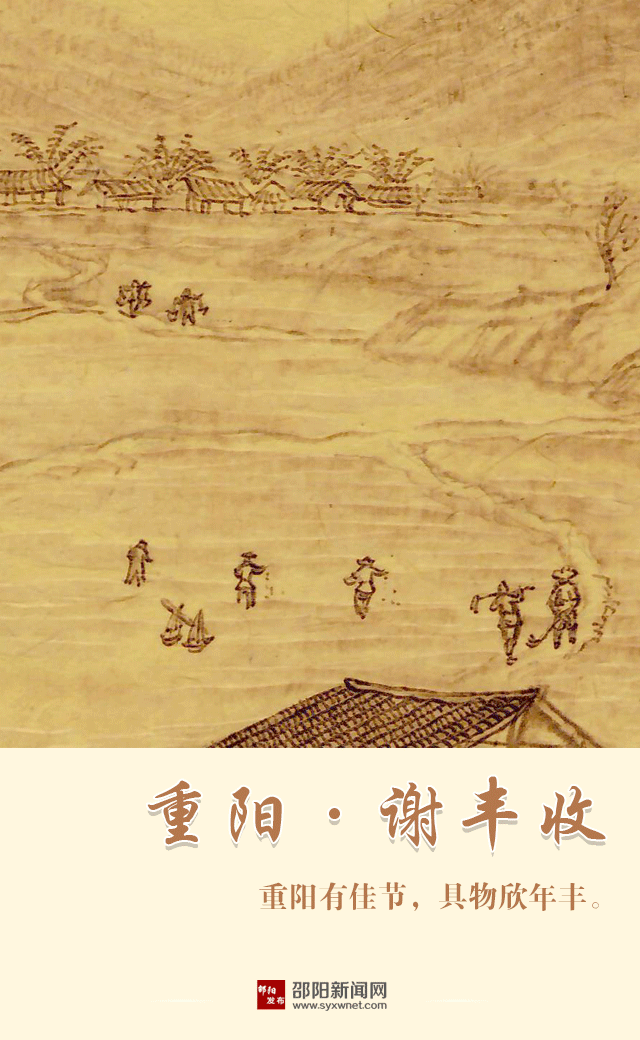 重阳·谢丰收
重阳有佳节，具物欣年丰。
邵阳
发布
邵阳新闻网
www.syxwnet.com